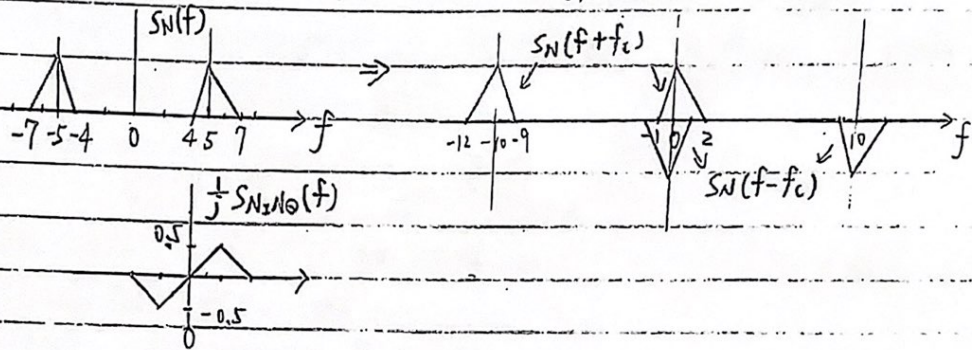 S_N(f)
-7 -5 -4 0 4 5 7 f
⇒
S_N(f+f_c)
-12 -10 -9 -1 0 2 10 f
S_N(f-f_c)
1/j S_{N_I N_Q}(f)
0.5
-0.5
0